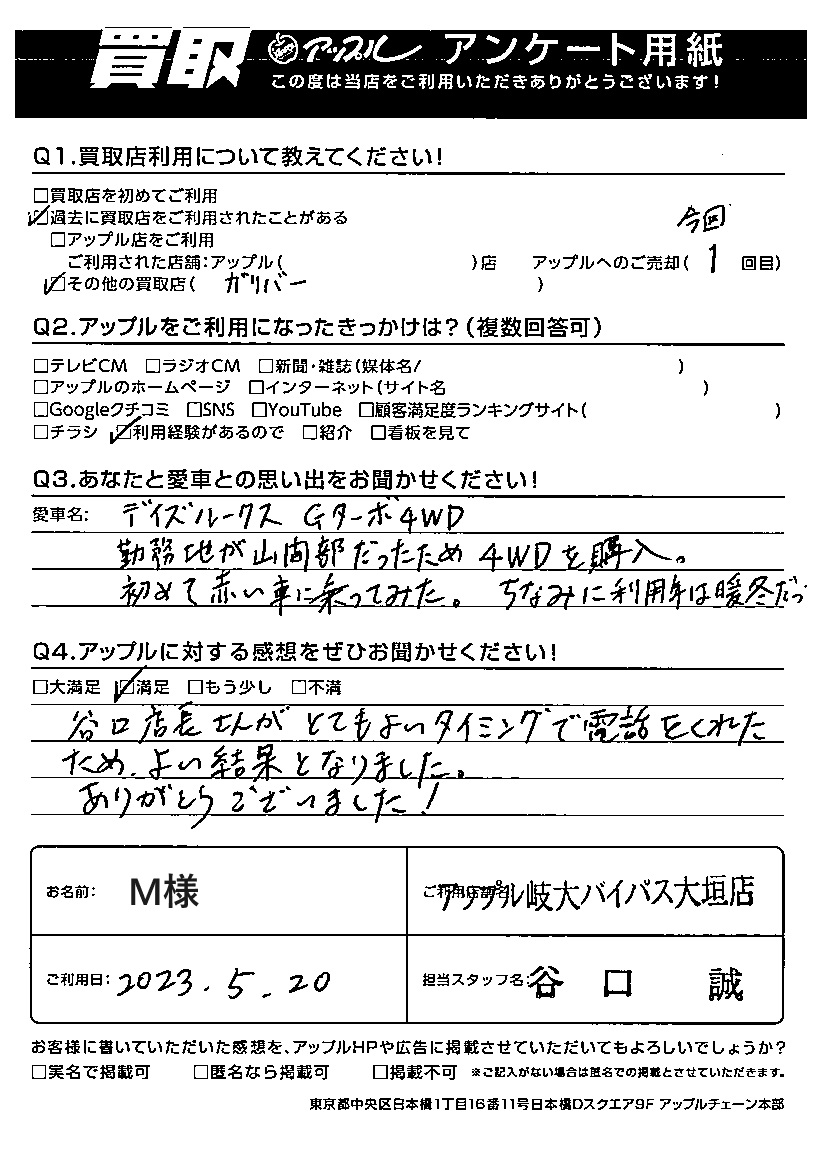 買取 アップル アンケート用紙
この度は当店をご利用いただきありがとうございます!
Q1.買取店利用について教えてください!
□買取店を初めてご利用
☑過去に買取店をご利用されたことがある
□アップル店をご利用
今回
ご利用された店舗:アップル( )店 アップルへのご売却( 1 回目)
☑その他の買取店( ガリバー )
Q2.アップルをご利用になったきっかけは?(複数回答可)
□テレビCM □ラジオCM □新聞・雑誌(媒体名/ )
□アップルのホームページ □インターネット(サイト名 )
□Googleクチコミ □SNS □YouTube □顧客満足度ランキングサイト( )
□チラシ ☑利用経験があるので □紹介 □看板を見て
Q3.あなたと愛車との思い出をお聞かせください!
愛車名: デイズルークス Gターボ4WD
勤務地が山間部だったため 4WDを購入。
初めて赤い車に乗ってみた。 ちなみに利用年は暖冬だっ
Q4.アップルに対する感想をぜひお聞かせください!
□大満足 ☑満足 □もう少し □不満
谷口店長さんが とてもよいタイミングで電話をくれた
ため、よい結果となりました。
ありがとうございました!
お名前: M様
ご利用店舗名: アップル岐大バイパス大垣店
ご利用日: 2023.5.20
担当スタッフ名: 谷 口 誠
お客様に書いていただいた感想を、アップルHPや広告に掲載させていただいてもよろしいでしょうか?
□実名で掲載可 □匿名なら掲載可 □掲載不可 ※ご記入がない場合は匿名での掲載とさせていただきます。
東京都中央区日本橋1丁目16番11号日本橋Dスクエア9F アップルチェーン本部